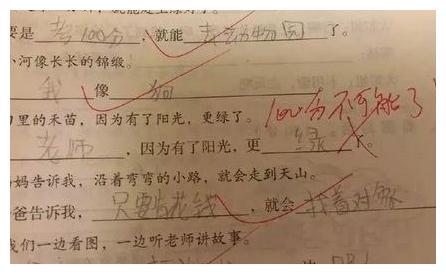 要是 考100分 ，就能 去动物园 了。
小河像长长的锦缎。
我 像 狗
100分不可能了
里的禾苗，因为有了阳光，更绿了。
老师 ，因为有了阳光，更 绿 了。
妈告诉我，沿着弯弯的小路，就会走到天山。
爸告诉我， 只要肯花钱 ，就会 找着对象
我们一边看图，一边听老师讲故事。